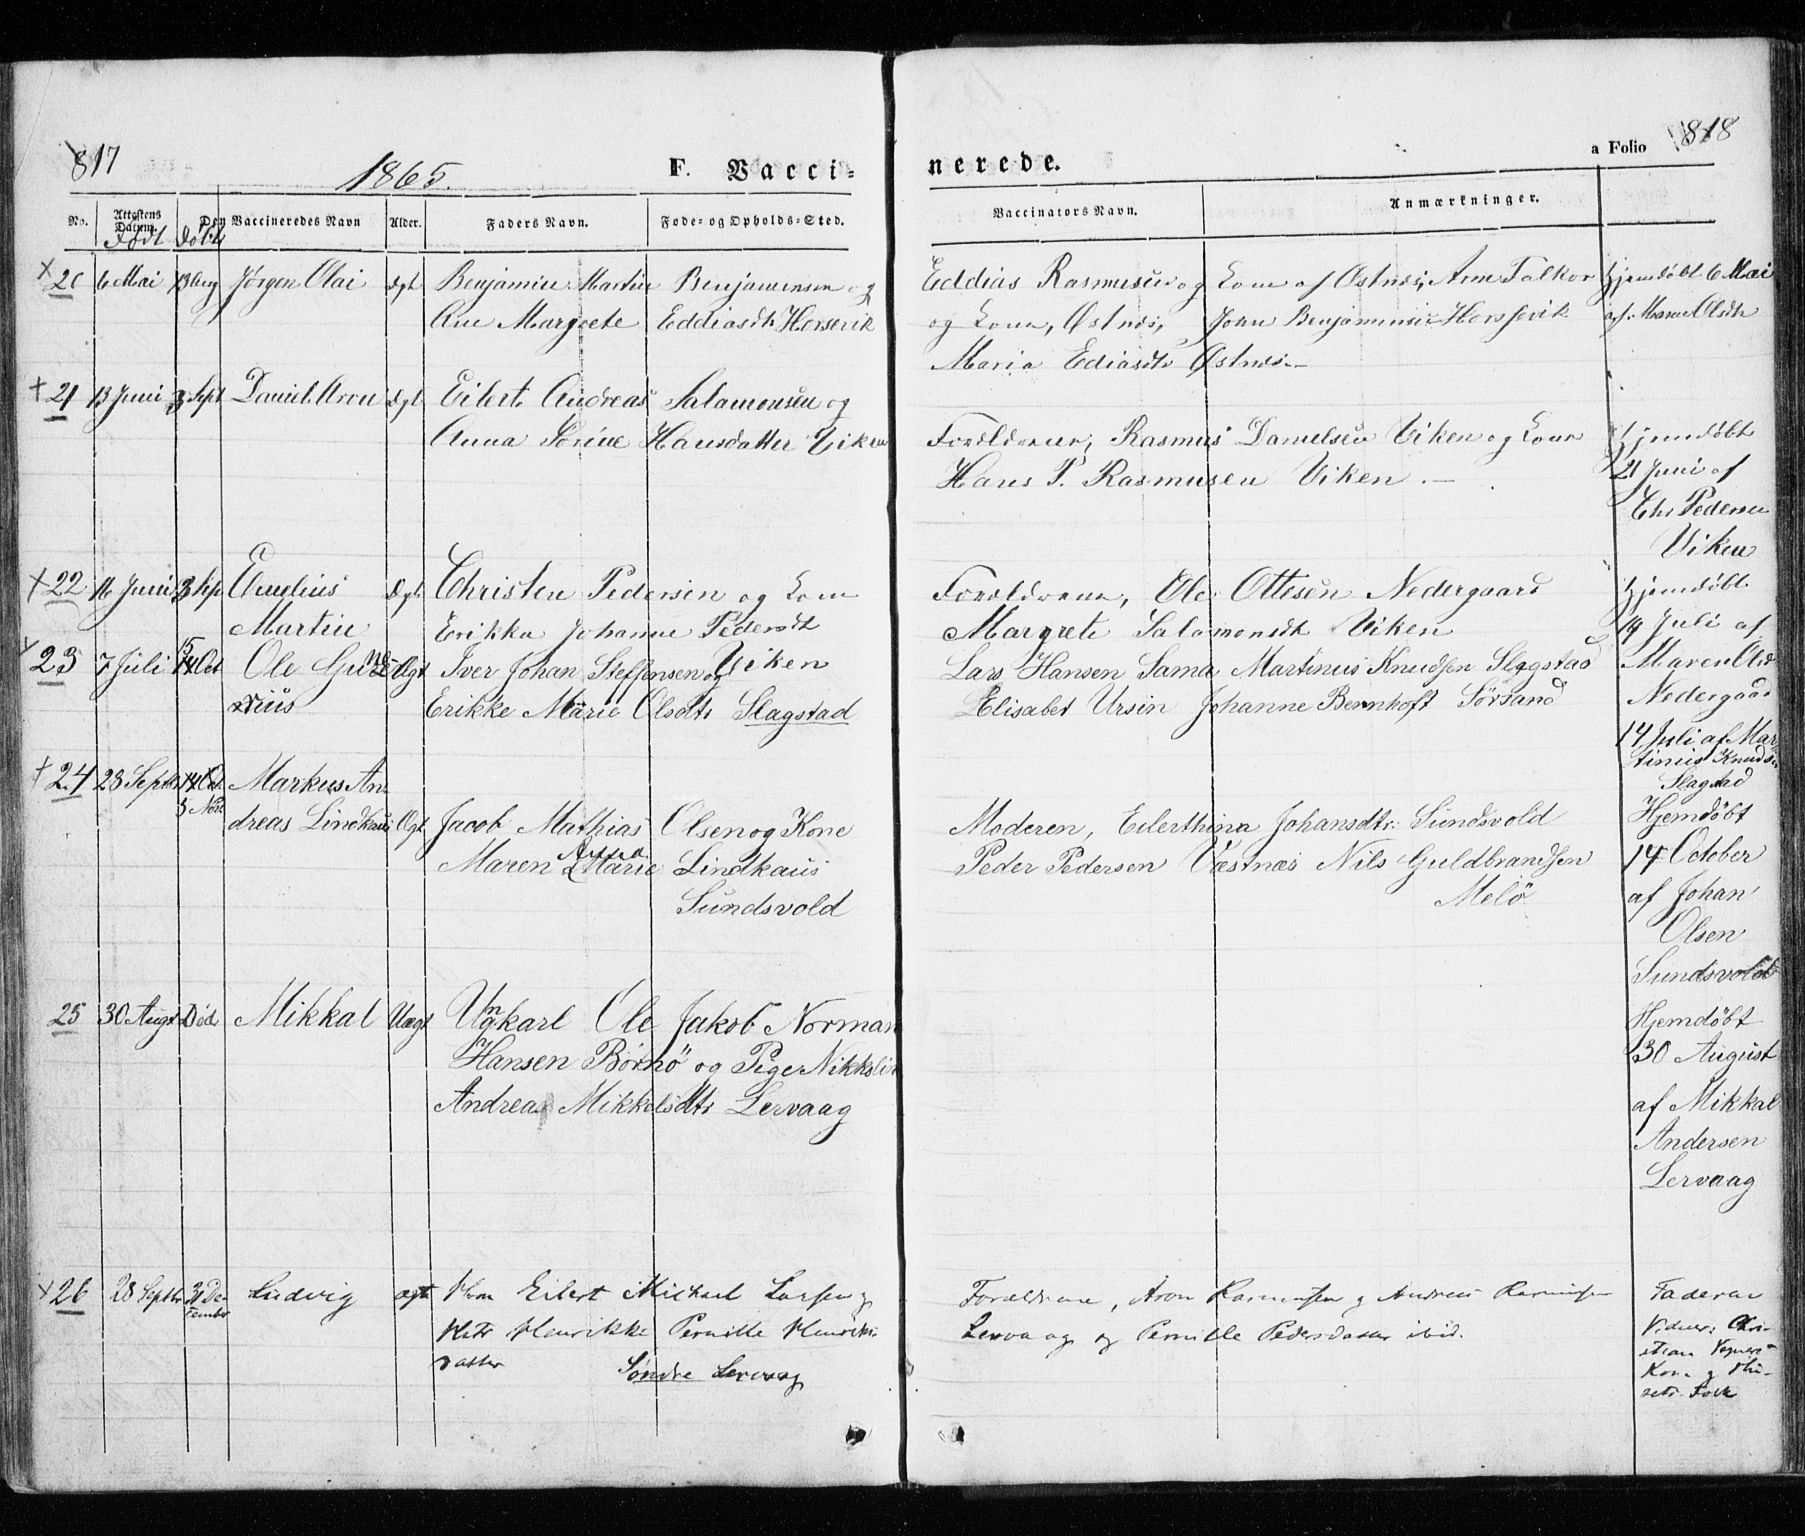 817
1865.
F. Vacci=
nerede.
a Folio 818
No. Attestens Datum. Den Vaccineredes Navn Alder. Faders Navn. Føde= og Opholds=Sted.
Født Døbt
Vaccinators Navn. Anmærkninger.
20 6 Mai 13 Aug Jørgen Olai Ægt Benjamin Martin Benjaminsen og
Ane Margrete Eddiasdtr Horsevik
Eddias Rasmusen og Kone af Østnes, Arne Falkor
og Kone, Østnes, John Benjaminsen Horsevik
Maria Ediasdtr Østnes. —
Hjemdøbt 6 Mai
af Maren Olsdtr
+ 21 13 Juni 3 Sept Daniel Aron Ægt. Eilert Andreas Salamonsen og
Anna Sørine Hansdatter Viken
Forældrene, Rasmus Danielsen Viken og Kone
Hans P. Rasmusen Viken. —
Hjemdøbt
21 Juni af
Chr Pedersen
Viken
+ 22 16 Juni 3 Sep Emelius Ægt. Christen Pedersen og Kone
Martin Erikka Johanne Pedersdt
Viken
Forældrene, Ole Ottesen Nedergaard
Margrete Salamonsdt Viken
Hjemdøbt
19 Juli af
Maren Olsd
Nedergaad
23 7 Juli 15 Oct Ole Gunde Ægt Iver Johan Steffensen og
rius Erikke Marie Olsdtr Slagstad
Lars Hansen Sama Martinus Knudsen Slagstad
Elisabet Ursin Johanne Bernhoft Sørsand
14 Juli af Mar
tinus Knuds
Slagstad
+ 24 28 Septb 14 Oct Markus An
5 Nov dreas Lindkaus Ægt. Jacob Mathias Olsen og Kone
Maren Marie Lindkaus
Sundsvold
Moderen, Eilerthina Johansdtr. Sundsvold
Peder Pedersen Væstnæs Nils Guldbrandsen
Melö
Hjemdøbt
14 October
af Johan
Olsen
Sundsvold
25 30 Augst Död Mikkal Uægt Ungkarl Ole Jakob Norman
Hansen Børnö og Pige Nikkoline
Andreas Mikkelsdtr Lervaag
Hjemdøbt
30 August
af Mikkal
Andersen
Lervaag
26 28 Septbr 31 De-
cember Ludvig ægte Hm Eilert Michael Larsen og
Hstr Henrikke Pernille Henriks-
datter Søndre Lervaag
Forældrene, Aron Rasmussen og Andreas Rasmussen
Lervaag og Pernille Pedersdatter ibid.
Fadderne
Vidner: Chri-
stian Vegners
Kone og